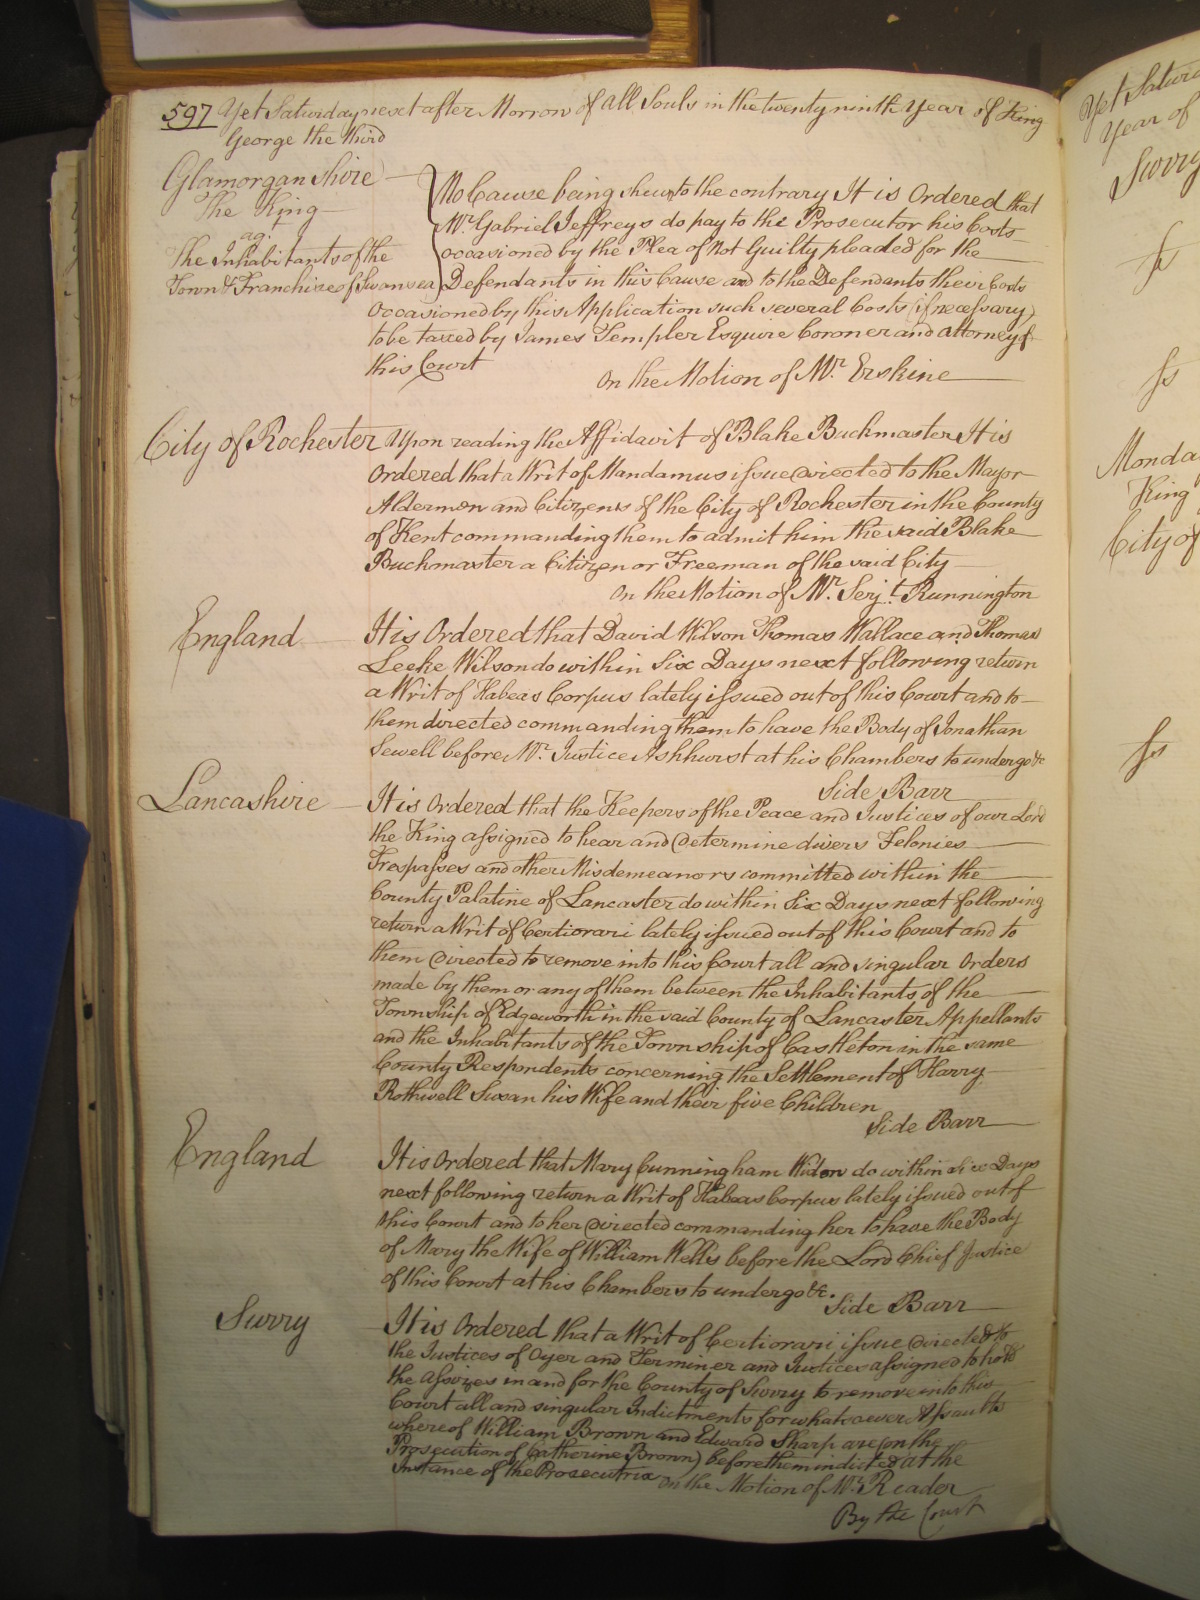 597 Yet Saturday next after Morrow of All Souls in the twenty ninth Year of King
George the third
Glamorganshire
The King
ag.
The Inhabitants of the
Town & Franchise of Swansea
No Cause being shewn to the contrary It is Ordered that
Mr. Gabriel Jeffreys do pay to the Prosecutor his Costs
occasioned by the Plea of Not Guilty pleaded for the
Defendants in this Cause and to the Defendants their Costs
Occasioned by this Application such several Costs (if necessary)
to be taxed by James Templer Esquire Coroner and Attorney of
this Court
On the Motion of Mr. Erskine
City of Rochester Upon reading the Affidavit of Blake Buckmaster It is
Ordered that a Writ of Mandamus issue Directed to the Mayor
Aldermen and Citizens of the City of Rochester in the County
of Kent commanding them to admit him the said Blake
Buckmaster a Citizen or Freeman of the said City
On the Motion of Mr. Serjt. Runnington
England It is Ordered that David Wilson Thomas Wallace and Thomas
Leeke Wilson do within Six Days next following return
a Writ of Habeas Corpus lately issued out of this Court and to
them directed commanding them to have the Body of Jonathan
Sewell before Mr. Justice Ashhurst at his Chambers to undergo &c
Side Barr
Lancashire It is Ordered that the Keepers of the Peace and Justices of our Lord
the King assigned to hear and Determine divers Felonies
Trespasses and other Misdemeanors committed within the
County Palatine of Lancaster do within Six Days next following
return a Writ of Certiorari lately issued out of this Court and to
them Directed to remove into this Court all and singular Orders
made by them or any of them between the Inhabitants of the
Township of Edgeworth in the said County of Lancaster Appellants
and the Inhabitants of the Township of Castleton in the same
County Respondents concerning the Settlement of Harry
Rothwell Susan his Wife and their five Children
Side Barr
England It is Ordered that Mary Cunningham Widow do within Six Days
next following return a Writ of Habeas Corpus lately issued out of
this Court and to her Directed commanding her to have the Body
of Mary the Wife of William Wells before the Lord Chief Justice
of this Court at his Chambers to undergo &c.
Side Barr
Surry It is Ordered that a Writ of Certiorari issue Directed to
the Justices of Oyer and Terminer and Justices assigned to hold
the Assizes in and for the County of Surry to remove into this
Court all and singular Indictments for whatsoever Assaults
whereof William Brown and Edward Sharp are (on the
Prosecution of Catherine Brown) before them indicted at the
Instance of the Prosecutrix
On the Motion of Mr. Reader
By the Court
Yet Satur
Year of
Surry
fs
fs
Monda
King
City of
fs